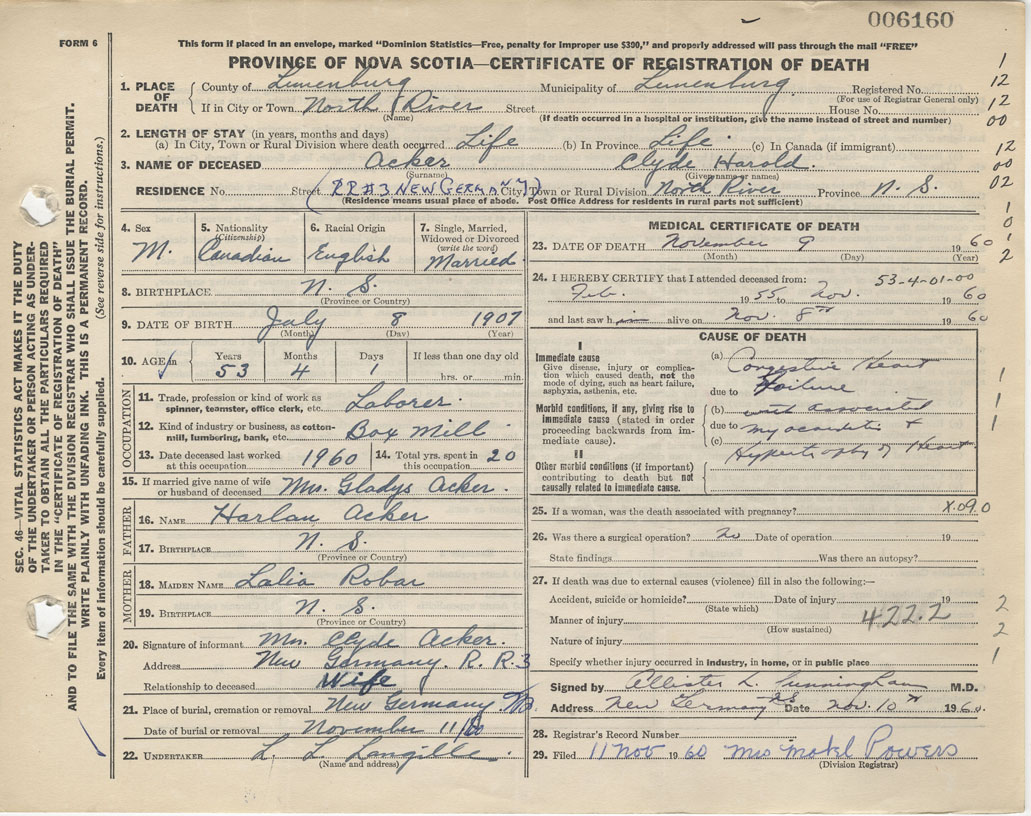 006160
FORM 6
This form if placed in an envelope, marked "Dominion Statistics—Free, penalty for improper use $300," and properly addressed will pass through the mail "FREE"
PROVINCE OF NOVA SCOTIA—CERTIFICATE OF REGISTRATION OF DEATH
1. PLACE OF DEATH
County of Lunenburg Municipality of Lunenburg Registered No.
(For use of Registrar General only)
If in City or Town North River Street House No.
(Name) (If death occurred in a hospital or institution, give the name instead of street and number)
2. LENGTH OF STAY (in years, months and days)
(a) In City, Town or Rural Division where death occurred Life (b) In Province Life (c) In Canada (if immigrant)
3. NAME OF DECEASED Acker Clyde Harold.
(Surname) (Given name or names)
RESIDENCE No. Street (RR#3 NEW GERMANY) City, Town or Rural Division North River Province N. S.
(Residence means usual place of abode. Post Office Address for residents in rural parts not sufficient)
1
12
12
00
12
00
02
1
0
2
1
1
1
2
2
1
4. Sex
M.
5. Nationality
(Citizenship)
Canadian
6. Racial Origin
English
7. Single, Married, Widowed or Divorced
(write the word)
Married
8. BIRTHPLACE N. S.
(Province or Country)
9. DATE OF BIRTH July 8 1907
(Month) (Day) (Year)
10. AGE
Years Months Days If less than one day old
53 4 1 hrs. or min.
OCCUPATION
11. Trade, profession or kind of work as spinner, teamster, office clerk, etc. Laborer.
12. Kind of industry or business, as cotton-mill, lumbering, bank, etc. Box Mill
13. Date deceased last worked at this occupation 1960
14. Total yrs. spent in this occupation 20
15. If married give name of wife or husband of deceased Mrs. Gladys Acker.
FATHER
16. NAME Harlan Acker
17. BIRTHPLACE N. S.
(Province or Country)
MOTHER
18. MAIDEN NAME Lalia Robar
19. BIRTHPLACE N. S.
(Province or Country)
20. Signature of informant Mrs. Clyde Acker.
Address New Germany. R. R. 3
Relationship to deceased Wife
21. Place of burial, cremation or removal New Germany
Date of burial or removal November 11/60
22. UNDERTAKER L. L. Langille.
(Name and address)
MEDICAL CERTIFICATE OF DEATH
23. DATE OF DEATH November 9 1960
(Month) (Day) (Year)
24. I HEREBY CERTIFY that I attended deceased from: 53-4-01-00
Feb. 1955 to Nov. 1960
and last saw him alive on Nov. 8th 1960
CAUSE OF DEATH
I
Immediate cause
Give disease, injury or complication which caused death, not the mode of dying, such as heart failure, asphyxia, asthenia, etc.
Morbid conditions, if any, giving rise to immediate cause (stated in order proceeding backwards from immediate cause).
II
Other morbid conditions (if important) contributing to death but not causally related to immediate cause.
(a) Congestive Heart
due to Failure
(b) with associated
due to myocarditis +
(c) Hypertrophy of Heart
25. If a woman, was the death associated with pregnancy? X.090
26. Was there a surgical operation? no Date of operation 19
State findings Was there an autopsy?
27. If death was due to external causes (violence) fill in also the following:—
Accident, suicide or homicide? Date of injury 19
(State which)
Manner of injury 422.2
(How sustained)
Nature of injury
Specify whether injury occurred in industry, in home, or in public place
Signed by Allister L. Cunningham M.D.
Address New Germany NS Date Nov. 10th 1960.
28. Registrar's Record Number
29. Filed 11 Nov 1960 Mrs Mabel Powers
(Division Registrar)
SEC. 46—VITAL STATISTICS ACT MAKES IT THE DUTY
OF THE UNDERTAKER OR PERSON ACTING AS UNDER-
TAKER TO OBTAIN ALL THE PARTICULARS REQUIRED
IN THE "CERTIFICATE OF REGISTRATION OF DEATH"
AND TO FILE THE SAME WITH THE DIVISION REGISTRAR WHO SHALL ISSUE THE BURIAL PERMIT.
WRITE PLAINLY WITH UNFADING INK. THIS IS A PERMANENT RECORD.
Every item of information should be carefully supplied. (See reverse side for instructions.)